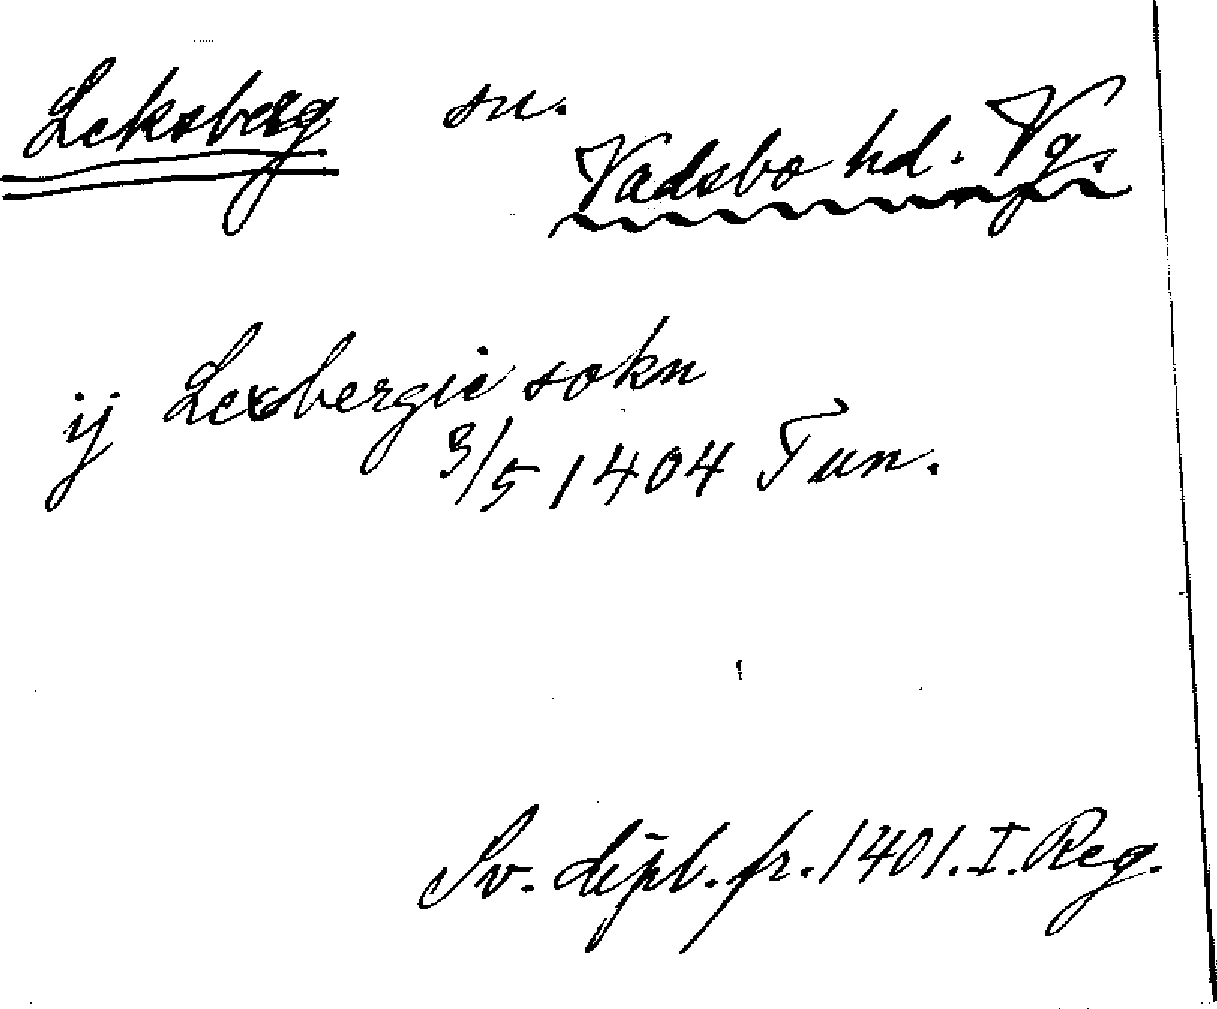 Leksberg sn.
Vadsbo hd. Vg.
ij Lexbergie sokn
3/5 1404 Tun.
Sv. dipl. fr. 1401. I. Reg.